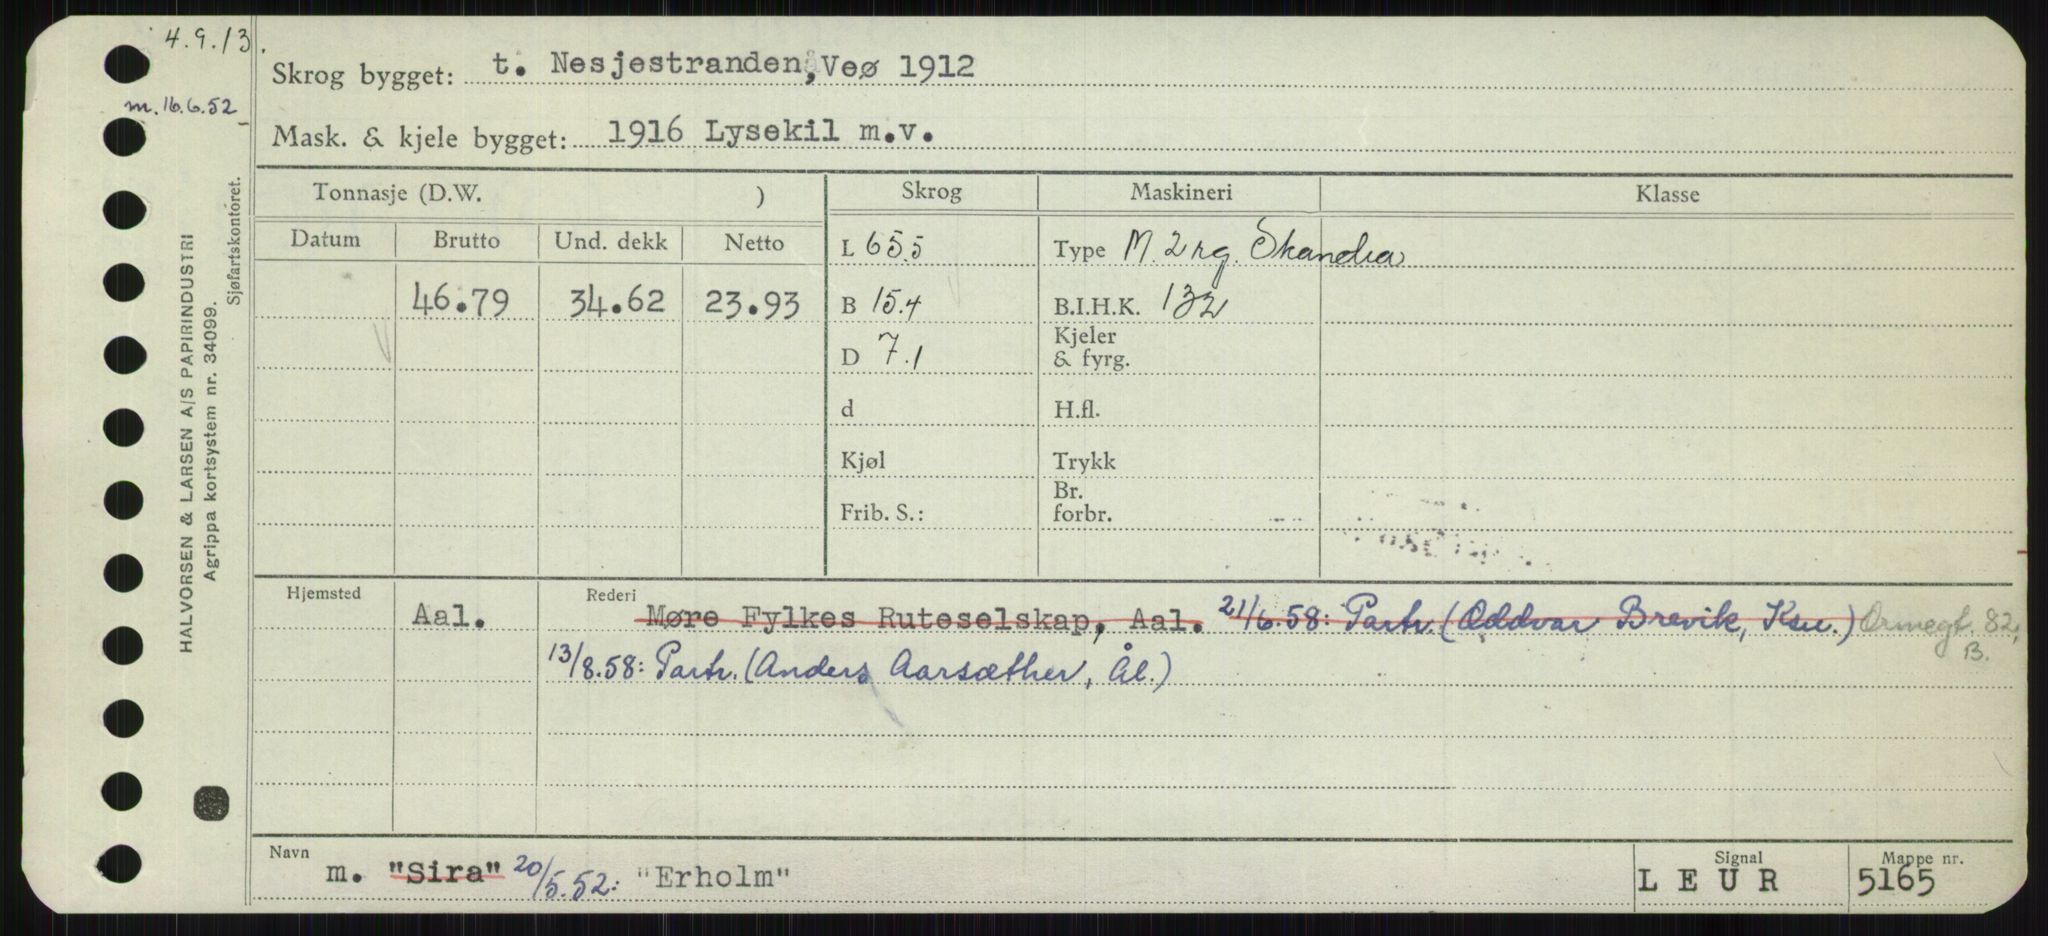 4.9.13.
m. 16.6.52
Skrog bygget: t. Nesjestranden, Veø 1912
Mask. & kjele bygget: 1916 Lysekil m.v.
Tonnasje (D.W. ) Skrog Maskineri Klasse
Datum Brutto Und. dekk Netto
46.79 34.62 23.93
L 65.5
B 15.4
D 7.1
d
Kjøl
Frib. S.:
Type M. 2 rg. Skandia
B.I.H.K. 132
Kjeler
& fyrg.
H.fl.
Trykk
Br.
forbr.
Hjemsted Rederi
Aal. Møre Fylkes Ruteselskap, Aal. 21/6.58: Partr. (Oddvar Brevik, Ksu.) Ormegt. 82,
B.
13/8.58: Partr. (Anders Aarsæther, Ål.)
Navn m. "Sira" 20/5.52: "Erholm"
Signal LEUR
Mappe nr. 5165
HALVORSEN & LARSEN A/S PAPIRINDUSTRI
Agrippa kortsystem nr. 34099.
Sjøfartskontoret.